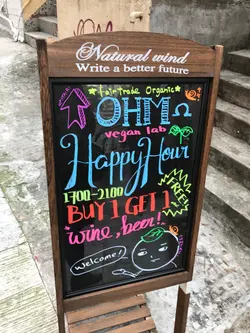 Natural wind
Write a better future
*fairtrade Organic*
OHM Ω
vegan lab
Happy Hour
1700-2100
BUY 1 GET 1
FREE!
"wine, beer!"
welcome!